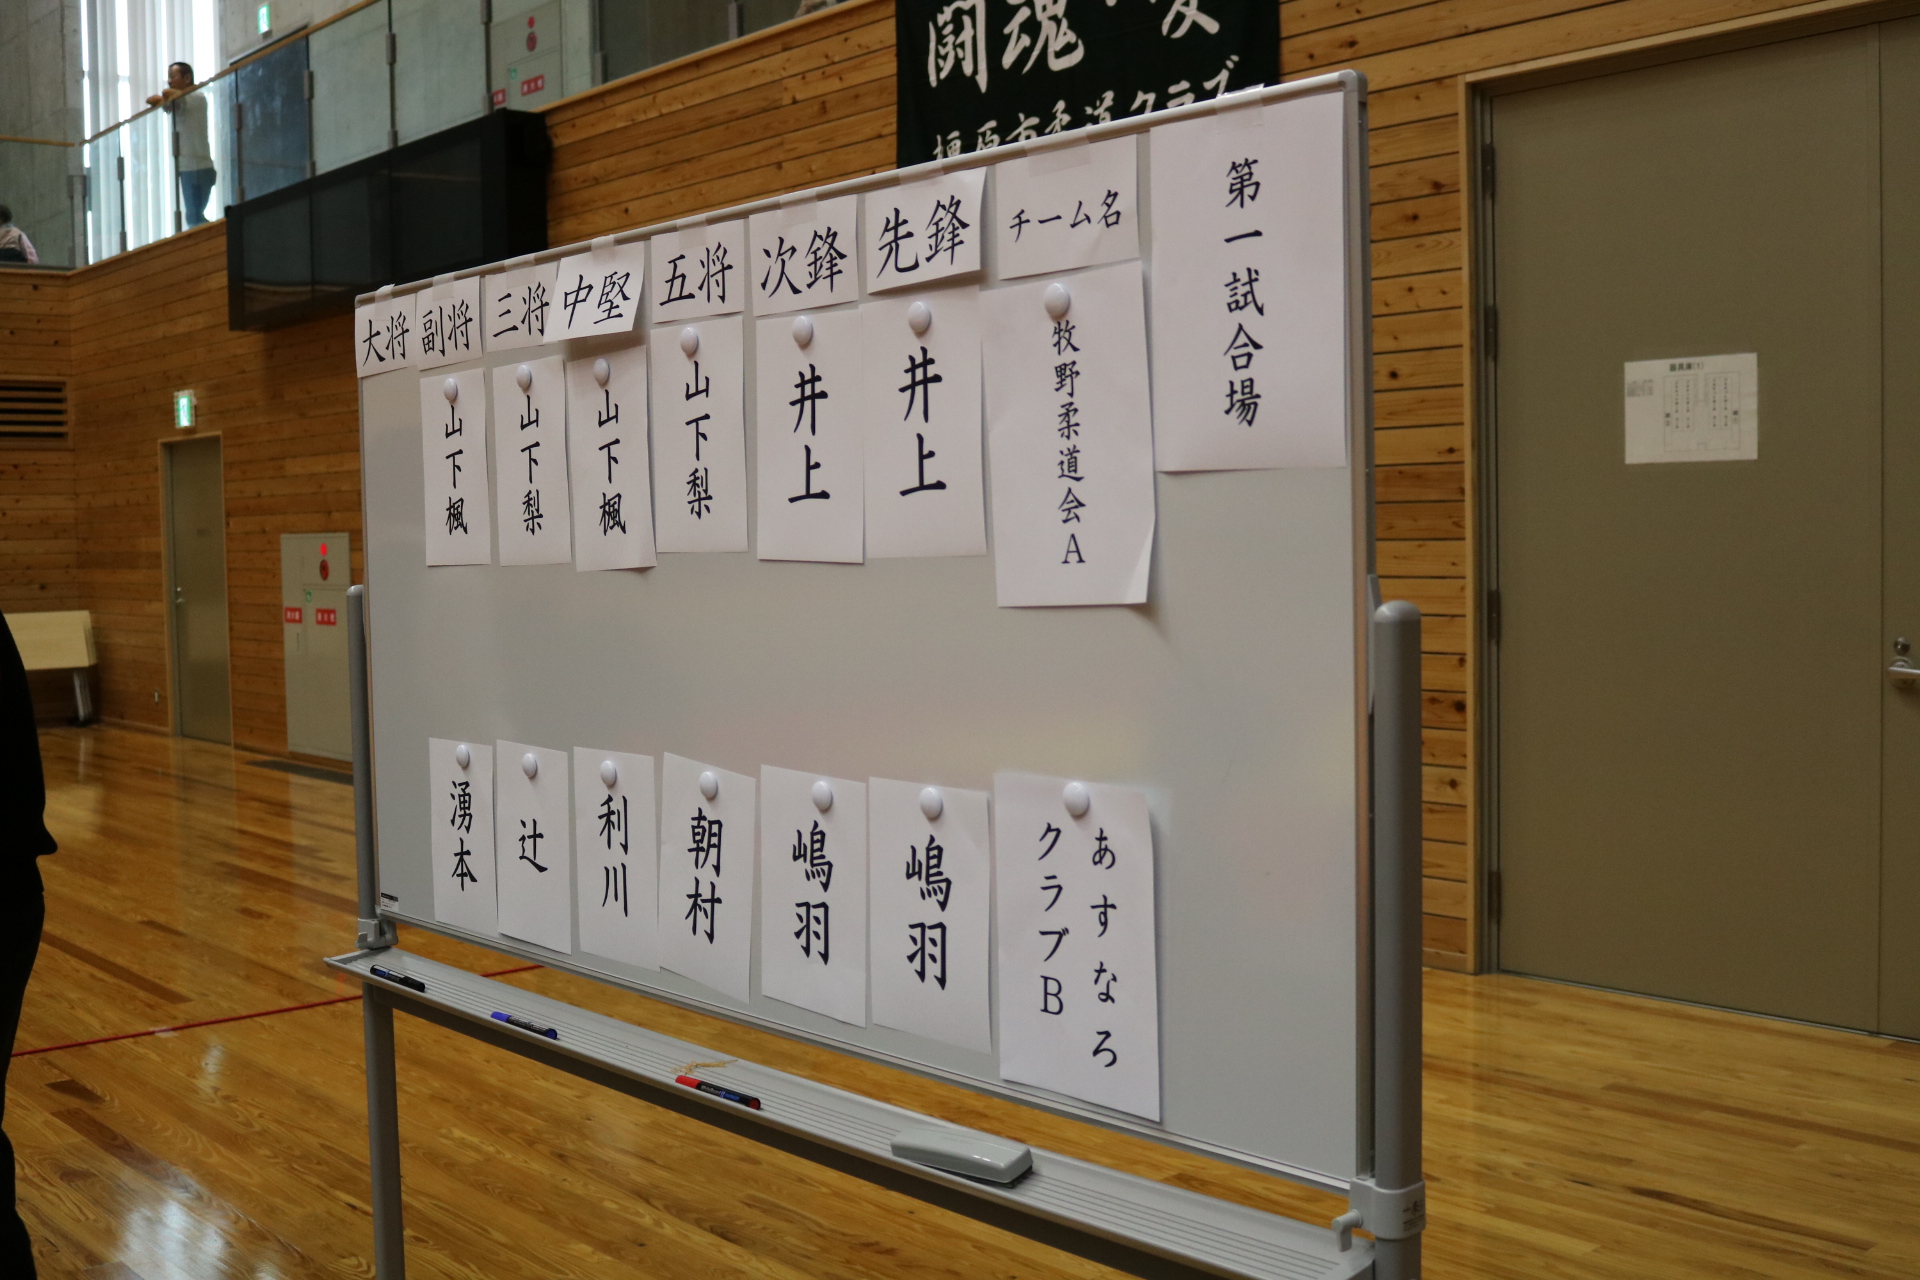 闘魂
橿原市柔道クラブ
第一試合場
チーム名
先鋒
次鋒
五将
中堅
三将
副将
大将
牧野柔道会A
井上
井上
山下梨
山下楓
山下梨
山下楓
あすなろ
クラブB
嶋羽
嶋羽
朝村
利川
辻
湧本